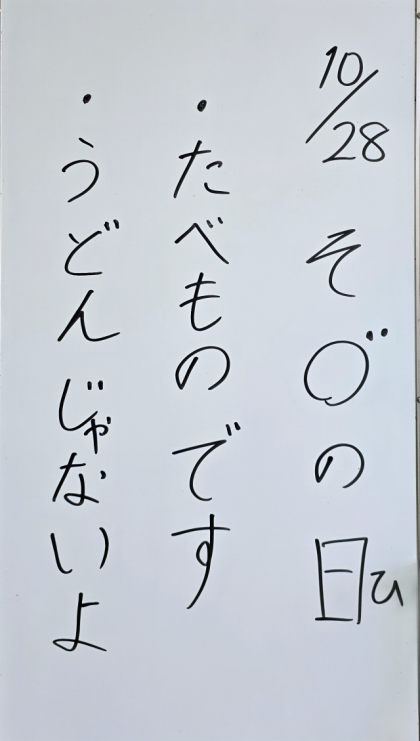 10/28 そ〇゛の日ひ
・たべものです
・うどんじゃないよ